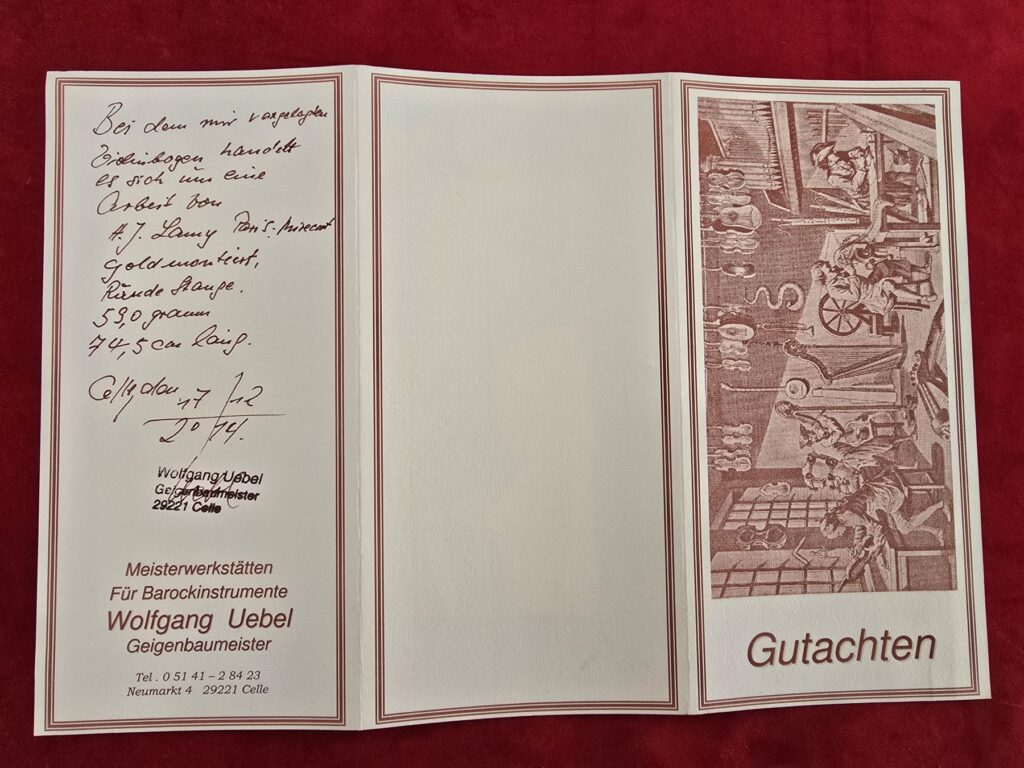 Bei dem mir vorgelegten
Violinbogen handelt
es sich um eine
Arbeit von
A. J. Lamy Paris. Mirecourt
goldmontiert,
Runde Stange.
59,0 gramm
74,5 cm lang.
Celle, den 17/12
20/14.
Wolfgang Uebel
Geigenbaumeister
29221 Celle
Meisterwerkstätten
Für Barockinstrumente
Wolfgang Uebel
Geigenbaumeister
Tel. 0 51 41 – 2 84 23
Neumarkt 4 29221 Celle
Gutachten